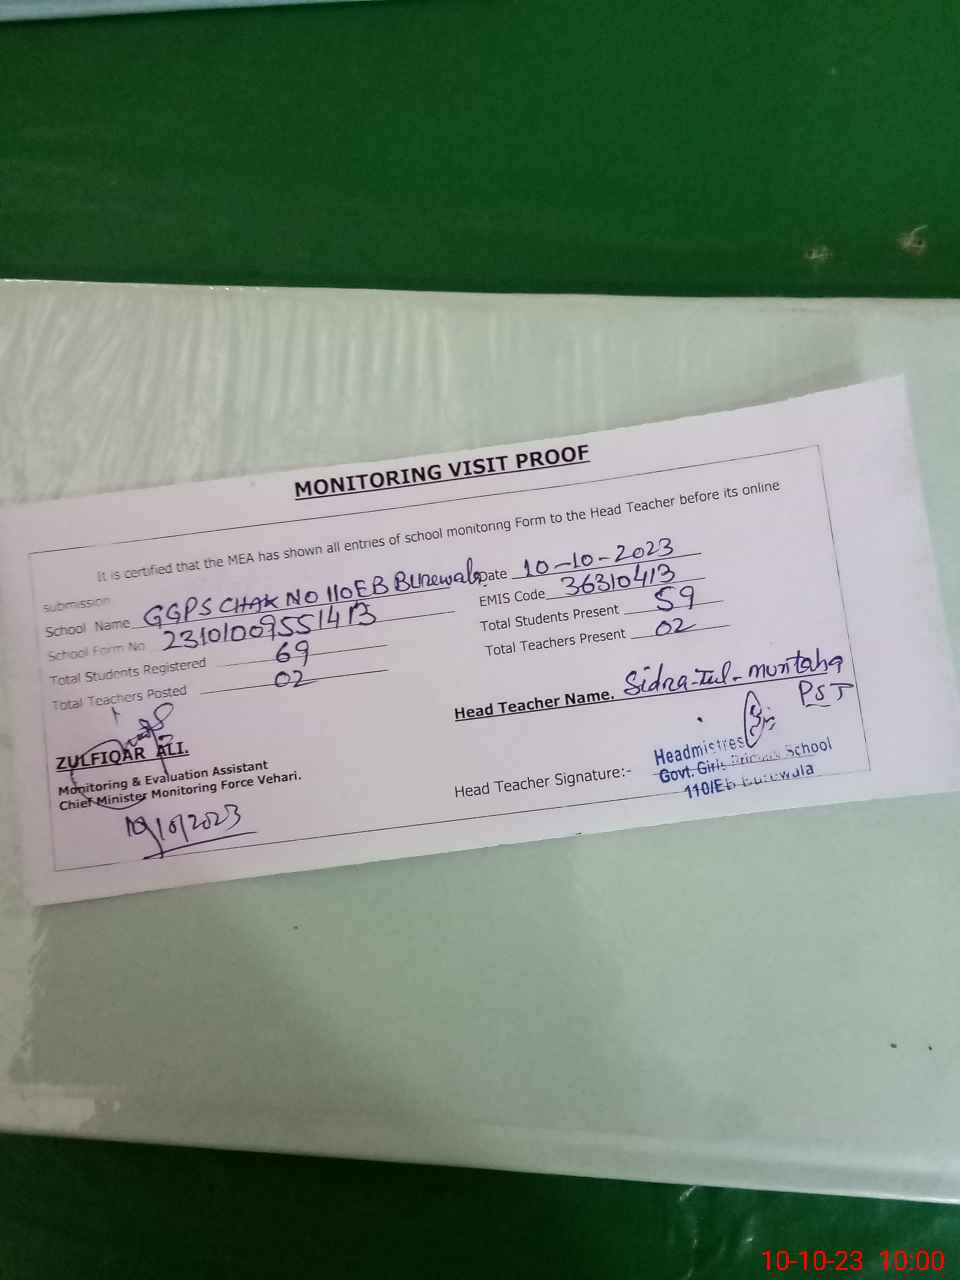 MONITORING VISIT PROOF
It is certified that the MEA has shown all entries of school monitoring Form to the Head Teacher before its online
submission
School Name GGPS CHAK NO 110EB Burewala Date 10-10-2023
School Form No 23101009551413 EMIS Code 36310413
Total Students Registered 69 Total Students Present 59
Total Teachers Posted 02 Total Teachers Present 02
Head Teacher Name. Sidra-tul-muntaha
PST
ZULFIQAR ALI.
Monitoring & Evaluation Assistant
Chief Minister Monitoring Force Vehari.
Head Teacher Signature:-
Headmistres
Govt. Girls Primary School
110/Eb Burewala
10-10-23 10:00